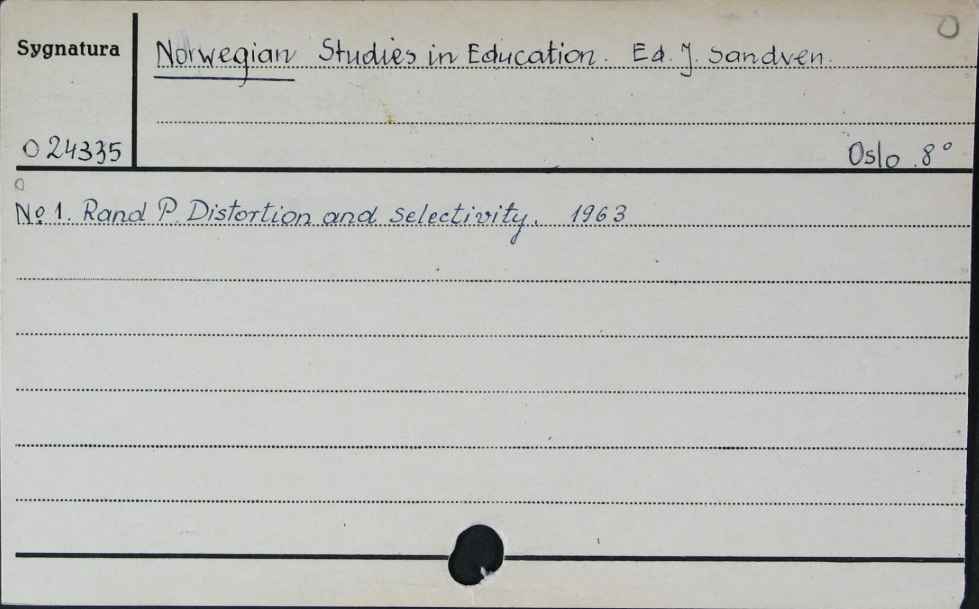 O
Sygnatura
Norwegian Studies in Education. Ed. J. Sandven.
O 24335
Oslo. 8°
O
№ 1. Rand P. Distortion and selectivity. 1963